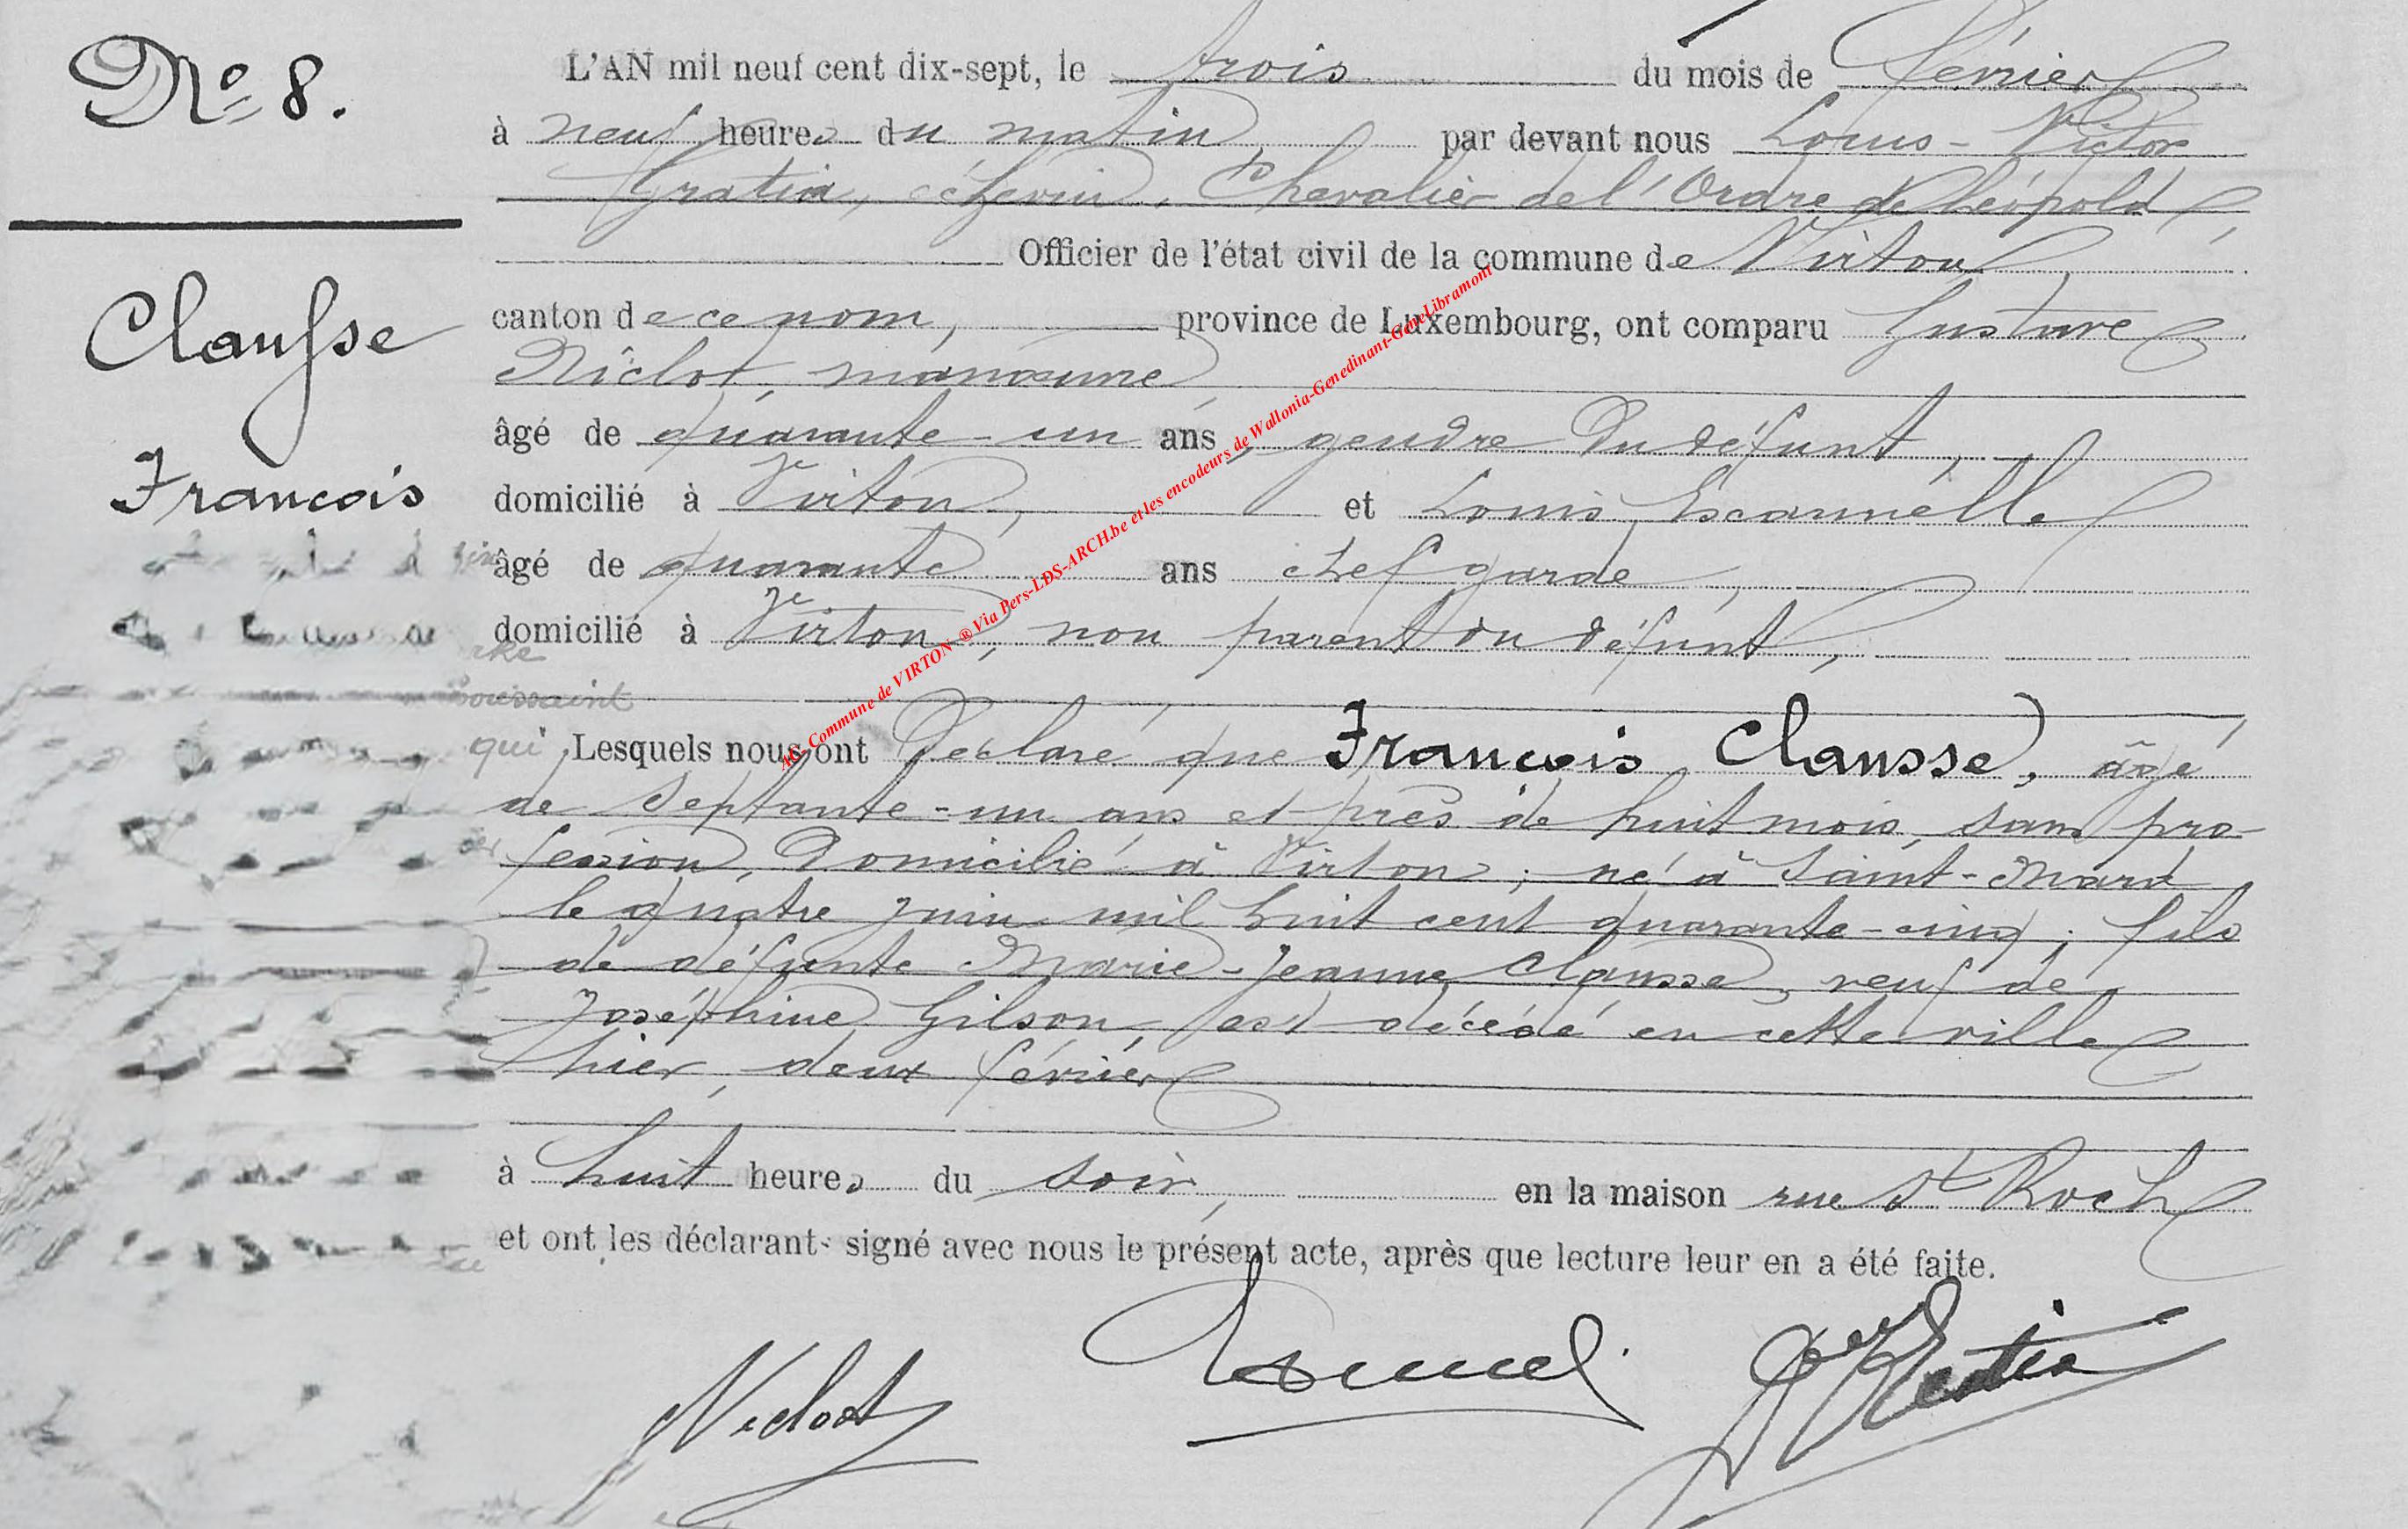 N° 8.
Clausse
François
L'AN mil neuf cent dix-sept, le trois du mois de février
à neuf heures du matin par devant nous Louis-Victor
Gratia, échevin, Chevalier de l'Ordre de Léopold,
Officier de l'état civil de la commune de Virton,
canton de ce nom, province de Luxembourg, ont comparu Gustave
Niclot, manœuvre,
âgé de quarante-un ans, gendre du défunt,
domicilié à Virton, et Louis Escannelle
âgé de quarante ans chef garde,
domicilié à Virton, non parent du défunt,
Lesquels nous ont déclaré que François Clausse, âgé
de septante-un ans et près de huit mois, sans pro-
fession, domicilié à Virton, né à Saint-Mard
le quatre juin mil huit cent quarante-cinq, fils
de défunte Marie-Jeanne Clausse, veuf de
Joséphine Gilson, est décédé en cette ville
hier, deux février
à huit heures du soir, en la maison rue St Roch
et ont les déclarants signé avec nous le présent acte, après que lecture leur en a été faite.
Niclot
AG. Commune de VIRTON ® Via Pers-LDS-ARCH.be et les encodeurs de Wallonia-Genedinant-GeneLibramont